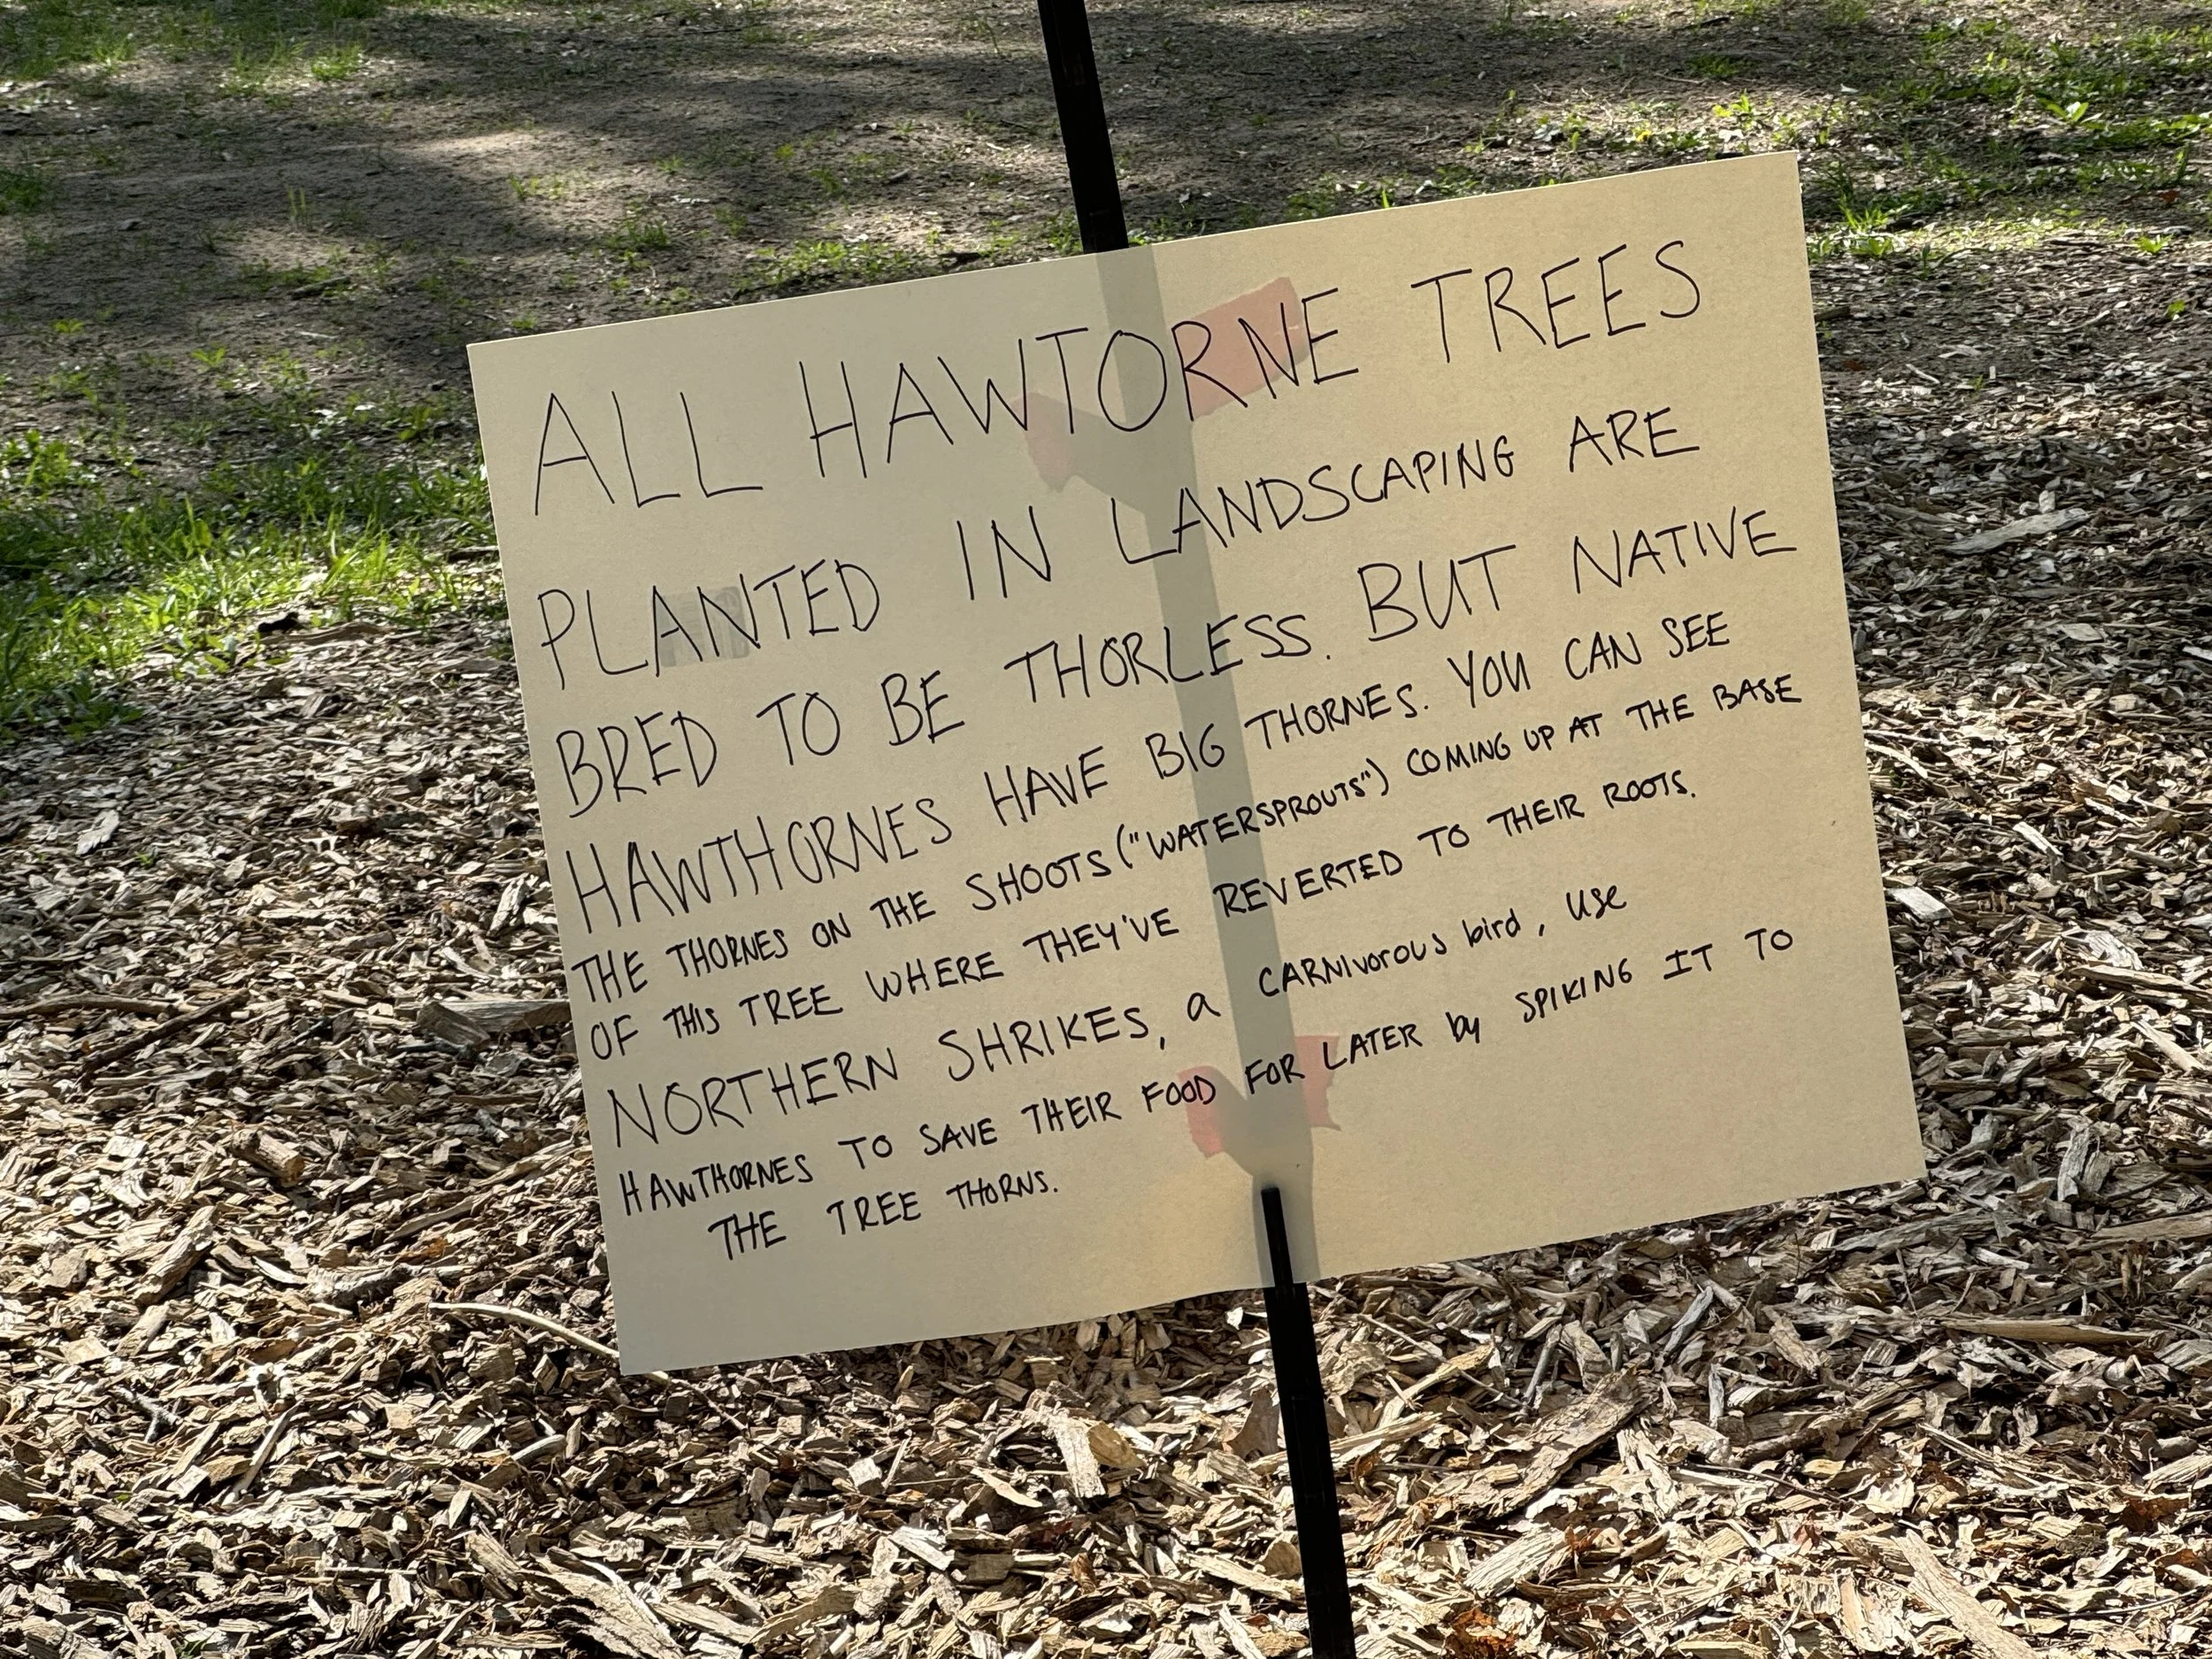 ALL HAWTORNE TREES
PLANTED IN LANDSCAPING ARE
BRED TO BE THORLESS. BUT NATIVE
HAWTHORNES HAVE BIG THORNES. YOU CAN SEE
THE THORNES ON THE SHOOTS ("WATERSPROUTS") COMING UP AT THE BASE
OF THIS TREE WHERE THEY'VE REVERTED TO THEIR ROOTS.
NORTHERN SHRIKES, a CARNIvorous bird, use
HAWTHORNES TO SAVE THEIR FOOD FOR LATER by SPIKING IT TO
THE TREE THORNS.